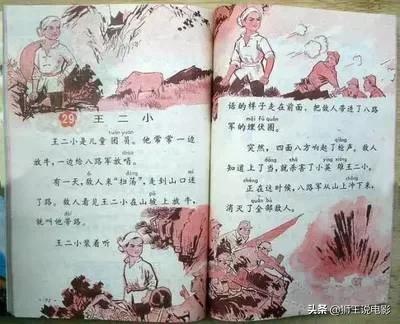 29 王二小
tuán yuán
王二小是儿童团员。他常常一边
shào
放牛,一边给八路军放哨。
dí dàng mí
有一天,敌人来“扫荡”,走到山口迷
了路。敌人看见王二小在山坡上放牛,
dài
就叫他带路。
王二小装着听
话的样子走在前面,把敌人带进了八路
mái fú quān
军的埋伏圈。
qiāng
突然,四面八方响起了枪声。敌人
hài xióng
知道上了当,就杀害了小英雄王二小。
zhèng
正在这时候,八路军从山上冲下来,
quán bù
消灭了全部敌人。
头条 @狮王说电影